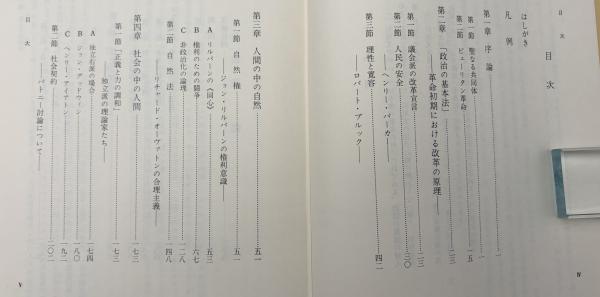 目次
目次
はしがき
凡例
第一章 序論……一
第一節 聖なる共同体……一
第二節 ピューリタン革命……五
第二章 「政治の基本法」……二三
――革命初期における改革の原理――
第一節 議会派の改革宣言……二三
第二節 人民の安全……三〇
――ヘンリー・パーカー――
第三節 理性と寛容……四二
――ロバート・ブルック――
Ⅳ
第三章 人間の中の自然……五一
第一節 自然権……五一
――ジョン・リルバーンの権利意識――
A リルバーンの《同意》……五三
B 権利のための闘争……六七
C 非政治化の論理……一二八
第二節 自然法……一四八
――リチャード・オーヴァトンの合理主義――
第四章 社会の中の人間……一七三
第一節 「正義と力の調和」……一七三
――独立派の理論家たち――
A 独立右派の場合……一七四
B ジョン・グッドウィン……一八〇
C ヘンリー・アイアトン……一九二
第二節 社会契約……二〇二
――パトニー討論について――
目次
Ⅴ